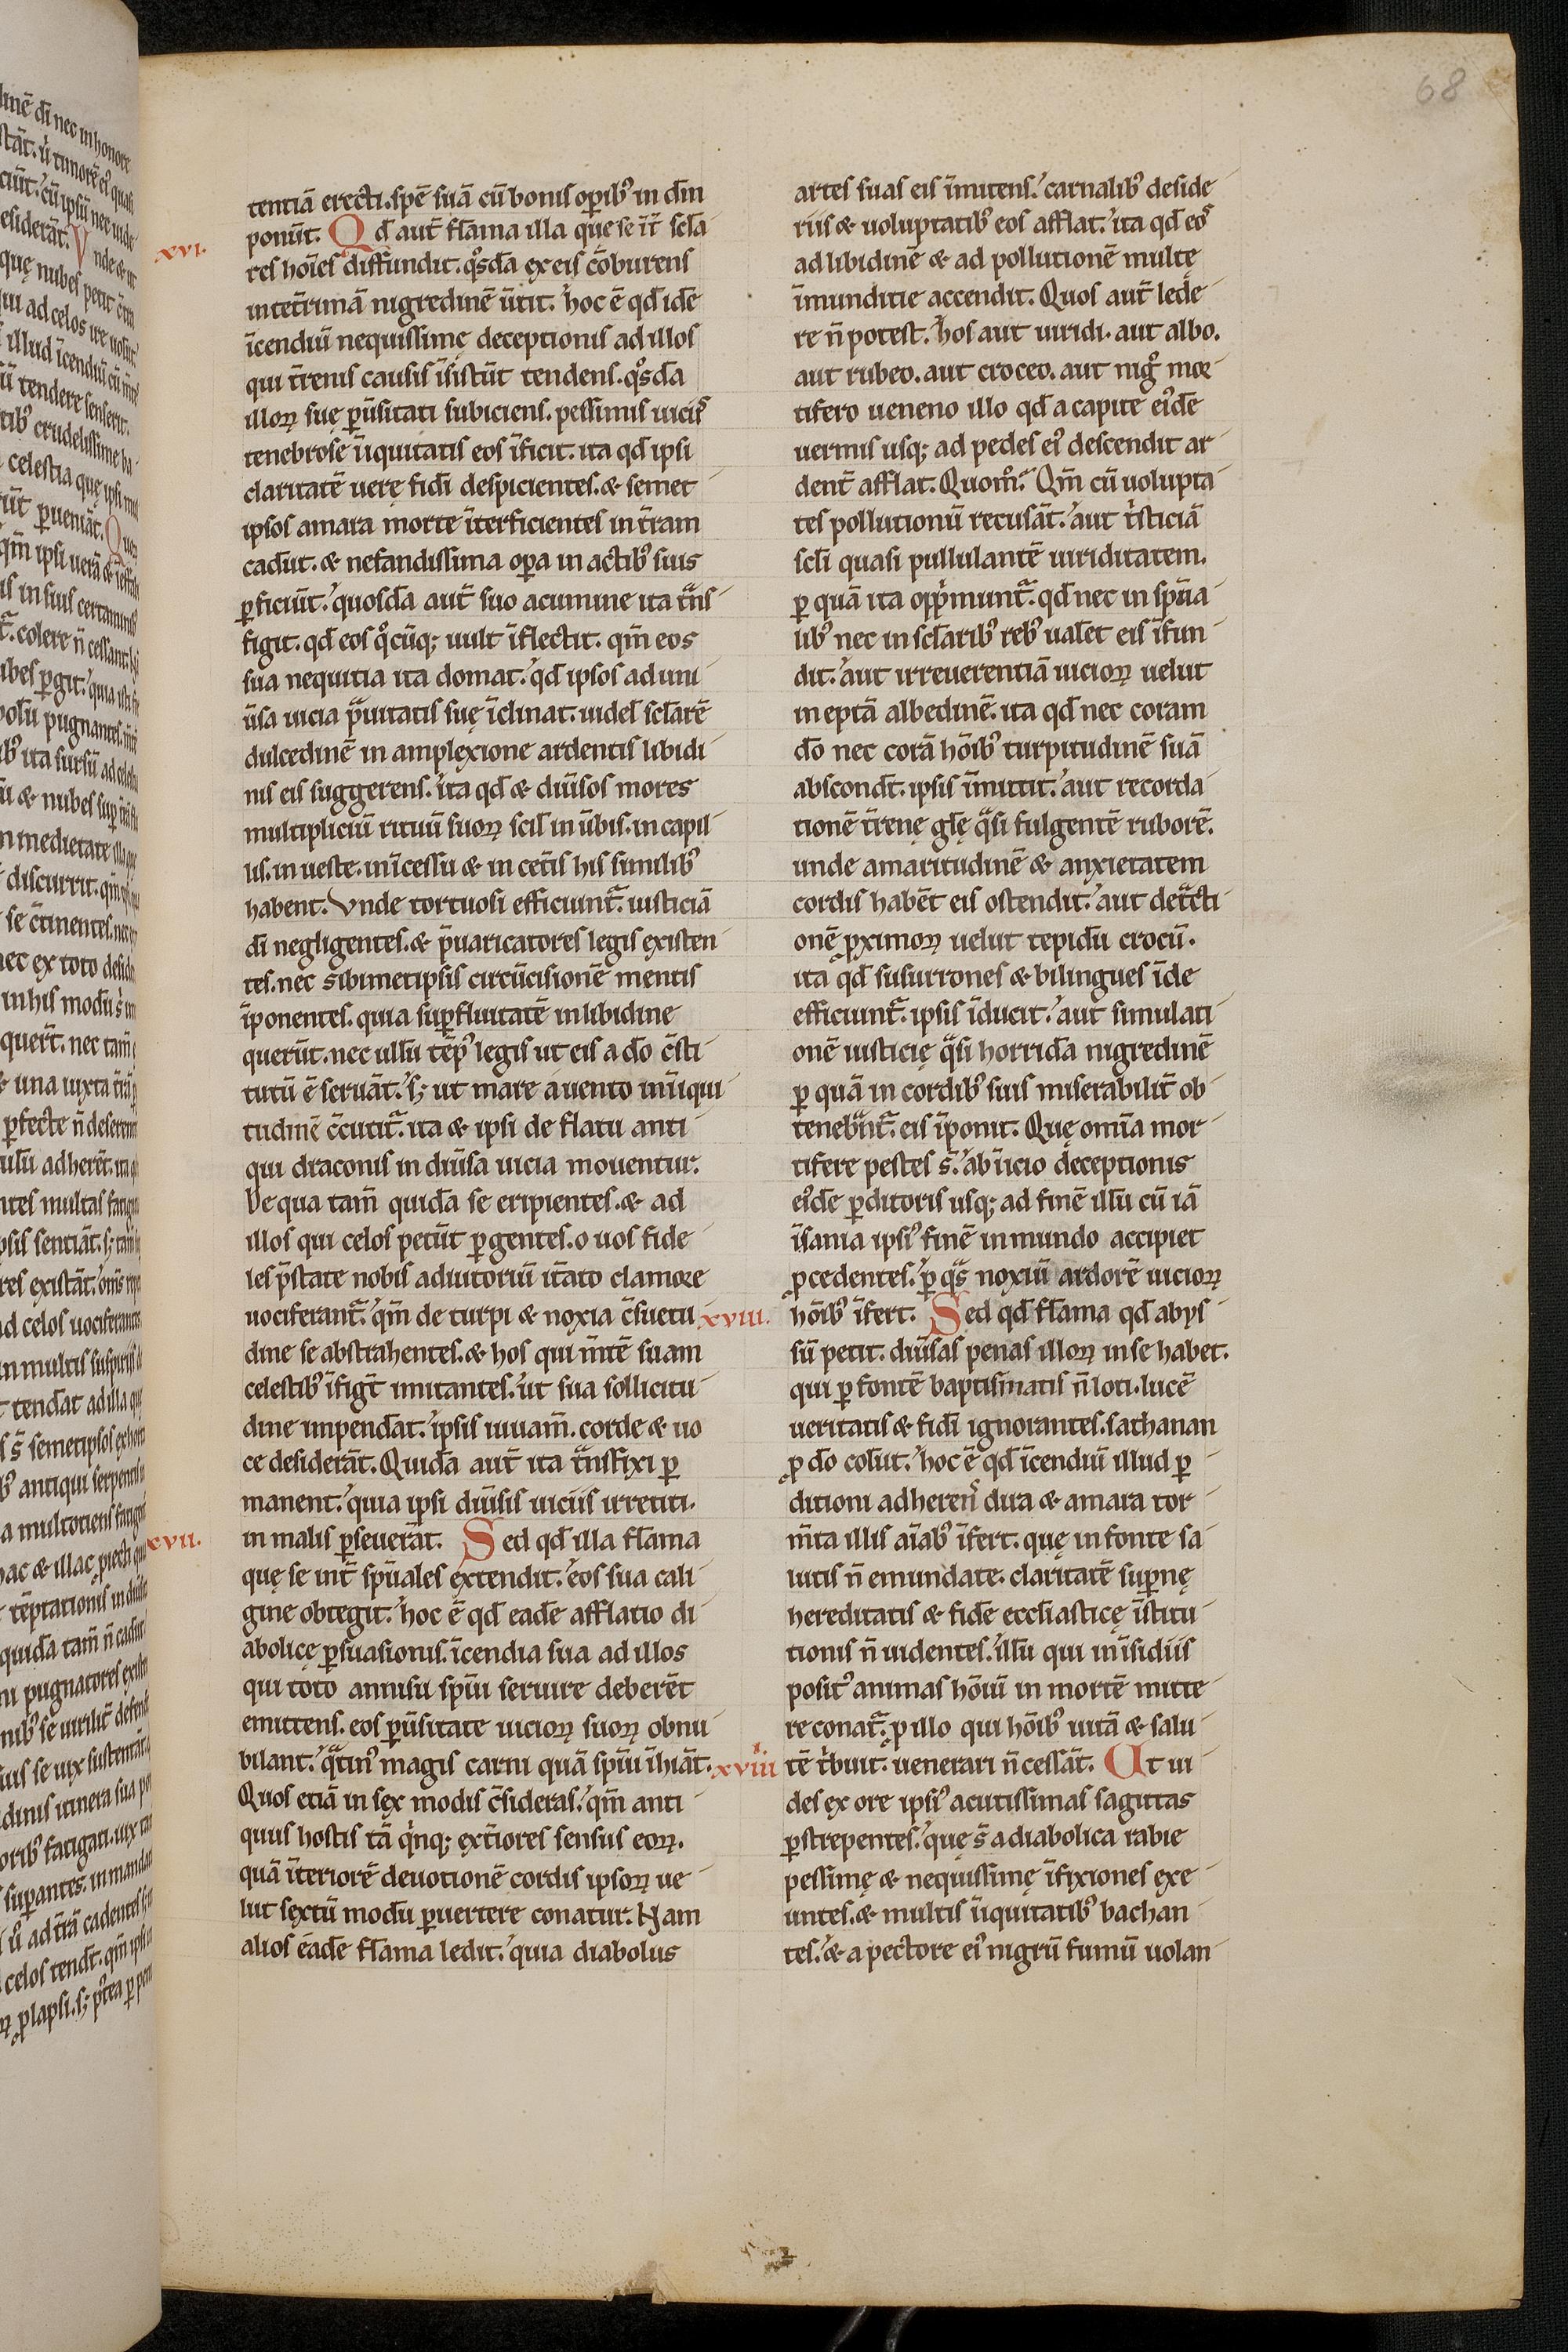 68
tentiā erecti. spē suā cū bonis oꝑibꝰ in dn̄m
xvi.
ponūt. Qd̄ aut̄ flāma illa que se īt̄ scl̄a
res hoīes diffundit. qͦsdā ex eis cōburens
in tet̄rimā nigredinē ūtit. hoc ē qd̄ idē
īcendiū nequissimę deceptionis ad illos
qui t̄renis causis īsistūt tendens. qͦsdā
illoꝝ suę ꝑūsitati subiciens. pessimis uiciis
tenebrose īiquitatis eos īficit. ita qd̄ ipsi
claritatē uere fidi despicientes. & semet
ipsos amara morte īterficientes in t̄ram
cadūt. & nefandissima oꝑa in actibꝰ suis
ꝑficiūt. quosdā aut̄ suo acumine ita tͣns
figit. qd̄ eos qͦcūq; uult īflectit. qm̄ eos
sua nequitia ita domat. qd̄ ipsos ad uni
ūsa uicia pͣuitatis suę īclinat. uidel̄ scl̄arē
dulcedinē in amplexione ardentis libidi
nis eis suggerens. ita qd̄ & diūsos mores
multipliciū rituū suoꝝ scil̄ in ūbis. in capil
lis. in ueste. in īcessu & in cet̄is his similibꝰ
habent. Vnde tortuosi efficiunt᷑ iusticiā
dī negligentes. & p̄uaricatores legis existen
tes. nec sibimetipsis circūcisionē mentis
īponentes. quia suꝑfluitatē in libidine
querūt. nec ullū tēpꝰ legis ut eis a dō c̄sti
tutū ē seruāt. s; ut mare a uento in īiqui
tudinē c̄cutit᷑. ita & ipsi de flatu anti
qui draconis in diūsa uicia mouentur.
De qua tam̄ quidā se eripientes. & ad
illos qui celos petūt ꝑgentes. o uos fide
les p̄state nobis adiutoriū it̄ato clamore
uociferant᷑. qm̄ de turpi & noxia c̄suetu
dine se abstrahentes. & hos qui m̄tē suam
celestibꝰ īfigt̄ imitantes. ut sua sollicitu
dine impendat. ipsis iuuam̄. corde & uo
ce desiderāt. Quidā aut̄ ita tͣnsfixi ꝑ
manent. quia ipsi diūsis uiciis irretiti.
xvii.
in malis ꝑseuerāt. Sed qd̄ illa flāma
quę se int̄ spūales extendit. eos sua cali
gine obtegit. hoc ē qd̄ eadē afflatio di
abolicę ꝑsuasionis. īcendia sua ad illos
qui toto annisu spīu seruire deberēt
emittens. eos ꝑūsitate uicioꝝ suoꝝ obnu
bilant. qͣtinꝰ magis carni quā spīui īhiāt.
Quos etiā in sex modis c̄sideras. qm̄ anti
quus hostis tā qͥnq; ext̄iores sensus eoꝝ.
quā īteriorē deuotionē cordis ipsoꝝ ue
lut sextū modū ꝑuertere conatur. Nam
alios eadē flāma ledit. quia diabolus
artes suas eis īmitens. carnalibꝰ deside
riis & uoluptatibꝰ eos afflat. ita qd̄ eos
ad libidinē & ad pollutionē multę
īmunditie accendit. Quos aut̄ lede
re n̄ potest. hos aut uiridi. aut albo.
aut rubeo. aut croceo. aut nigͦ mor
tifero ueneno illo qd̄ a capite eiꝰdē
uermis usq; ad pedes eiꝰ descendit ar
dent̄ afflat. Quomͦ. Qm̄ cū uolupta
tes pollutionū recusāt. aut tͥsticiā
scl̄i quasi pullulantē uiriditatem.
ꝑ quā ita opp̄munt᷑. qd̄ nec in spūa
libꝰ nec in scl̄aribꝰ rebꝰ ualet eis īfun
dit. aut irreuerentiā uicioꝝ uelut
ineptā albedinē. ita qd̄ nec coram
dō nec corā hōibꝰ turpitudinē suā
abscondt̄. ipsis īmittit. aut recorda
tionē t̄renę gl̄ę qͣsi fulgentē ruborē.
unde amaritudinē & anxietatem
cordis habēt eis ostendit. aut detͣcti
onē ꝓximoꝝ uelut tepidū crocū.
ita qd̄ susurrones & bilingues īde
efficiunt᷑. ipsis īducit. aut simulati
onē iusticię qͣsi horridā nigredinē
ꝑ quā in cordibꝰ suis miserabilit̄ ob
tenebͣnt᷑. eis īponit. Quę omīa mor
tifere pestes s̄. ab īicio deceptionis
eiꝰdē ꝑditoris usq; ad finē illū cū iā
īsania ipsiꝰ finē in mundo accipiet
ꝓcedentes. ꝑ qͣs noxiū ardorē uicioꝝ
xviii.
hōibꝰ īfert. Sed qd̄ flāma qd̄ abys
sū petit. diūsas penas illoꝝ in se habet.
qui ꝑ fontē baptismatis n̄ loti. lucē
ueritatis & fidī ignorantes. sathanan
ꝓ dō colūt. hoc ē qd̄ īcendiū illud ꝑ
ditioni adherens dura & amara tor
m̄ta illis aīabꝰ īfert. quę in fonte sa
lutis n̄ emundate. claritatē suꝑnę
hereditatis & fidē eccl̄iasticę īstitu
tionis n̄ uidentes. illū qui in īsidiis
positꝰ animas hōiū in mortē mitte
re conat᷑. ꝓ illo qui hōibꝰ uitā & salu
xviiii
tē tͥbuit. uenerari n̄ cessāt. Ut ui
des ex ore ipsiꝰ acutissimas sagittas
ꝑstrepentes. quę s̄ a diabolica rabie
pessimę & nequissimę īfixiones exe
untes. & multis īiquitatibꝰ bachan
tes. & a pectore eiꝰ nigrū fumū uolan